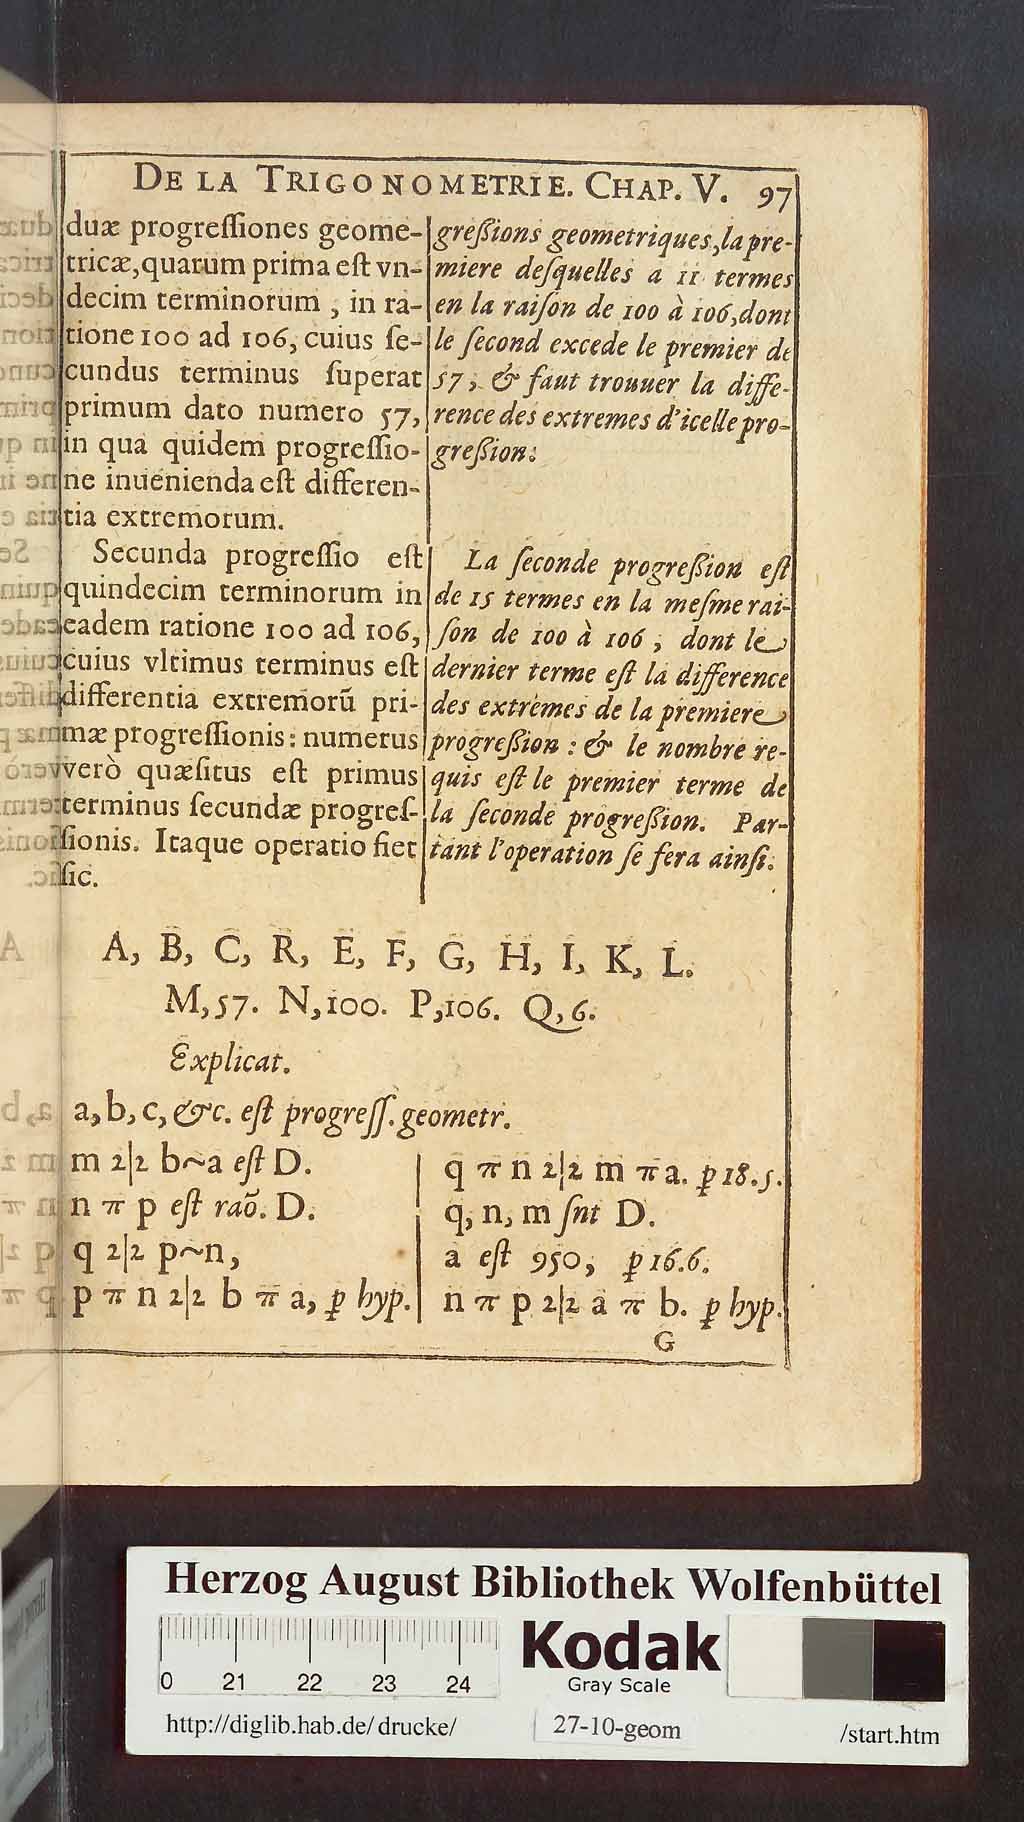 DE LA TRIGONOMETRIE. CHAP. V. 97
duæ progreſſiones geome-
tricæ, quarum prima eſt vn-
decim terminorum, in ra-
tione 100 ad 106, cuius ſe-
cundus terminus ſuperat
primum dato numero 57,
in qua quidem progreſſio-
ne inuenienda eſt differen-
tia extremorum.
Secunda progreſſio eſt
quindecim terminorum in
eadem ratione 100 ad 106,
cuius vltimus terminus eſt
differentia extremorũ pri-
mæ progreſſionis: numerus
verò quæſitus eſt primus
terminus ſecundæ progreſ-
ſionis. Itaque operatio fiet
ſic.
greßions geometriques, la pre-
miere deſquelles a 11 termes
en la raiſon de 100 à 106, dont
le ſecond excede le premier de
57, & faut trouuer la diffe-
rence des extremes d'icelle pro-
greßion.
La ſeconde progreßion eſt
de 15 termes en la meſme rai-
ſon de 100 à 106, dont le
dernier terme eſt la difference
des extrémes de la premiere
progreßion: & le nombre re-
quis eſt le premier terme de
la ſeconde progreßion. Par-
tant l'operation ſe fera ainſi.
A, B, C, R, E, F, G, H, I, K, L.
M, 57. N, 100. P, 106. Q, 6.
Explicat.
a, b, c, &c. eſt progreſſ. geometr.
m 2|2 b~a eſt D.
n π p eſt raõ. D.
q 2|2 p~n,
p π n 2|2 b π a, ꝑ hyp.
q π n 2|2 m π a. ꝑ 18. 5.
q, n, m ſnt D.
a eſt 950, ꝑ 16. 6.
n π p 2|2 a π b. ꝑ hyp.
G
Herzog August Bibliothek Wolfenbüttel
0 21 22 23 24
Kodak
Gray Scale
http://diglib.hab.de/drucke/ 27-10-geom /start.htm